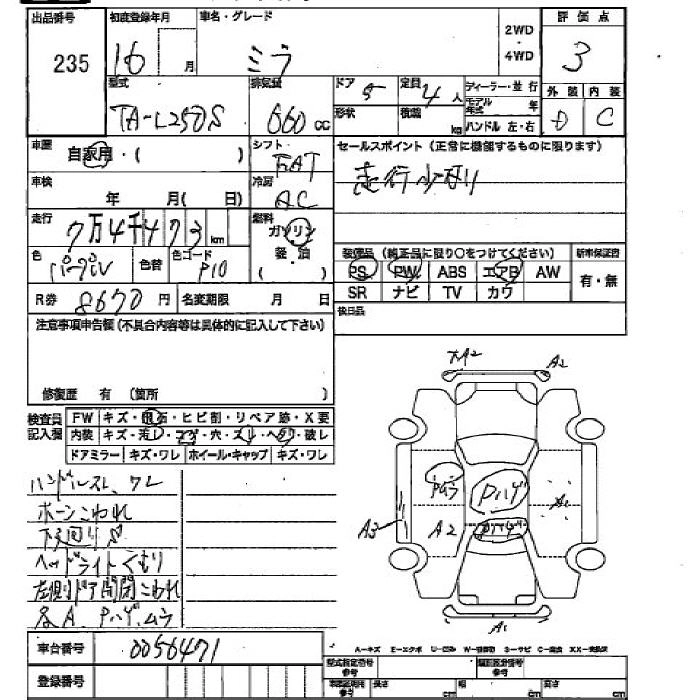 出品番号 初度登録年月 車名・グレード 評価点
235 16 月 ミラ 2WD・4WD 3
型式 排気量 ドア 5 定員 4人 ディーラー・並行 外装 内装
TA-L250S 660cc 形状 積載 kg モデル年式 年 D C
ハンドル 左・右
車歴 自家用・( ) シフト FAT セールスポイント(正常に機能するものに限ります)
車検 年 月( 日) 冷房 AC 走行少なり
走行 7万4千473km 燃料 ガソリン・軽油( )
色 パープル 色替 色コード P10
装備品(純正品に限り○をつけてください) 新車保証書
PS PW ABS エアB AW 有・無
SR ナビ TV カワ
R券 8670円 名変期限 月 日 後日品
注意事項申告欄(不具合内容等は具体的に記入して下さい)
修復歴 有(箇所 )
検査員記入欄 FW キズ・飛石・ヒビ割・リペア跡・X要
内装 キズ・汚レ・コゲ・穴・スレ・ヘタリ・破レ
ドアミラー キズ・ワレ ホイール・キャップ キズ・ワレ
ハンドルスレ、ワレ
ホーンこわれ
下廻りS
ヘッドライトくもり
左側ドア開閉こわれ
各A、Pハゲ、ムラ
XA2 A2
Pムラ Pハゲ A1
A3 A2 Pハゲ
A1
車台番号 0056471
登録番号
A-キズ E-エクボ U-凹み W-補修跡 S-サビ C-腐食 XX-交換済
型式指定番号 参考 類別区分番号 参考
車両使用 参考 長さ cm 幅 cm 高さ cm